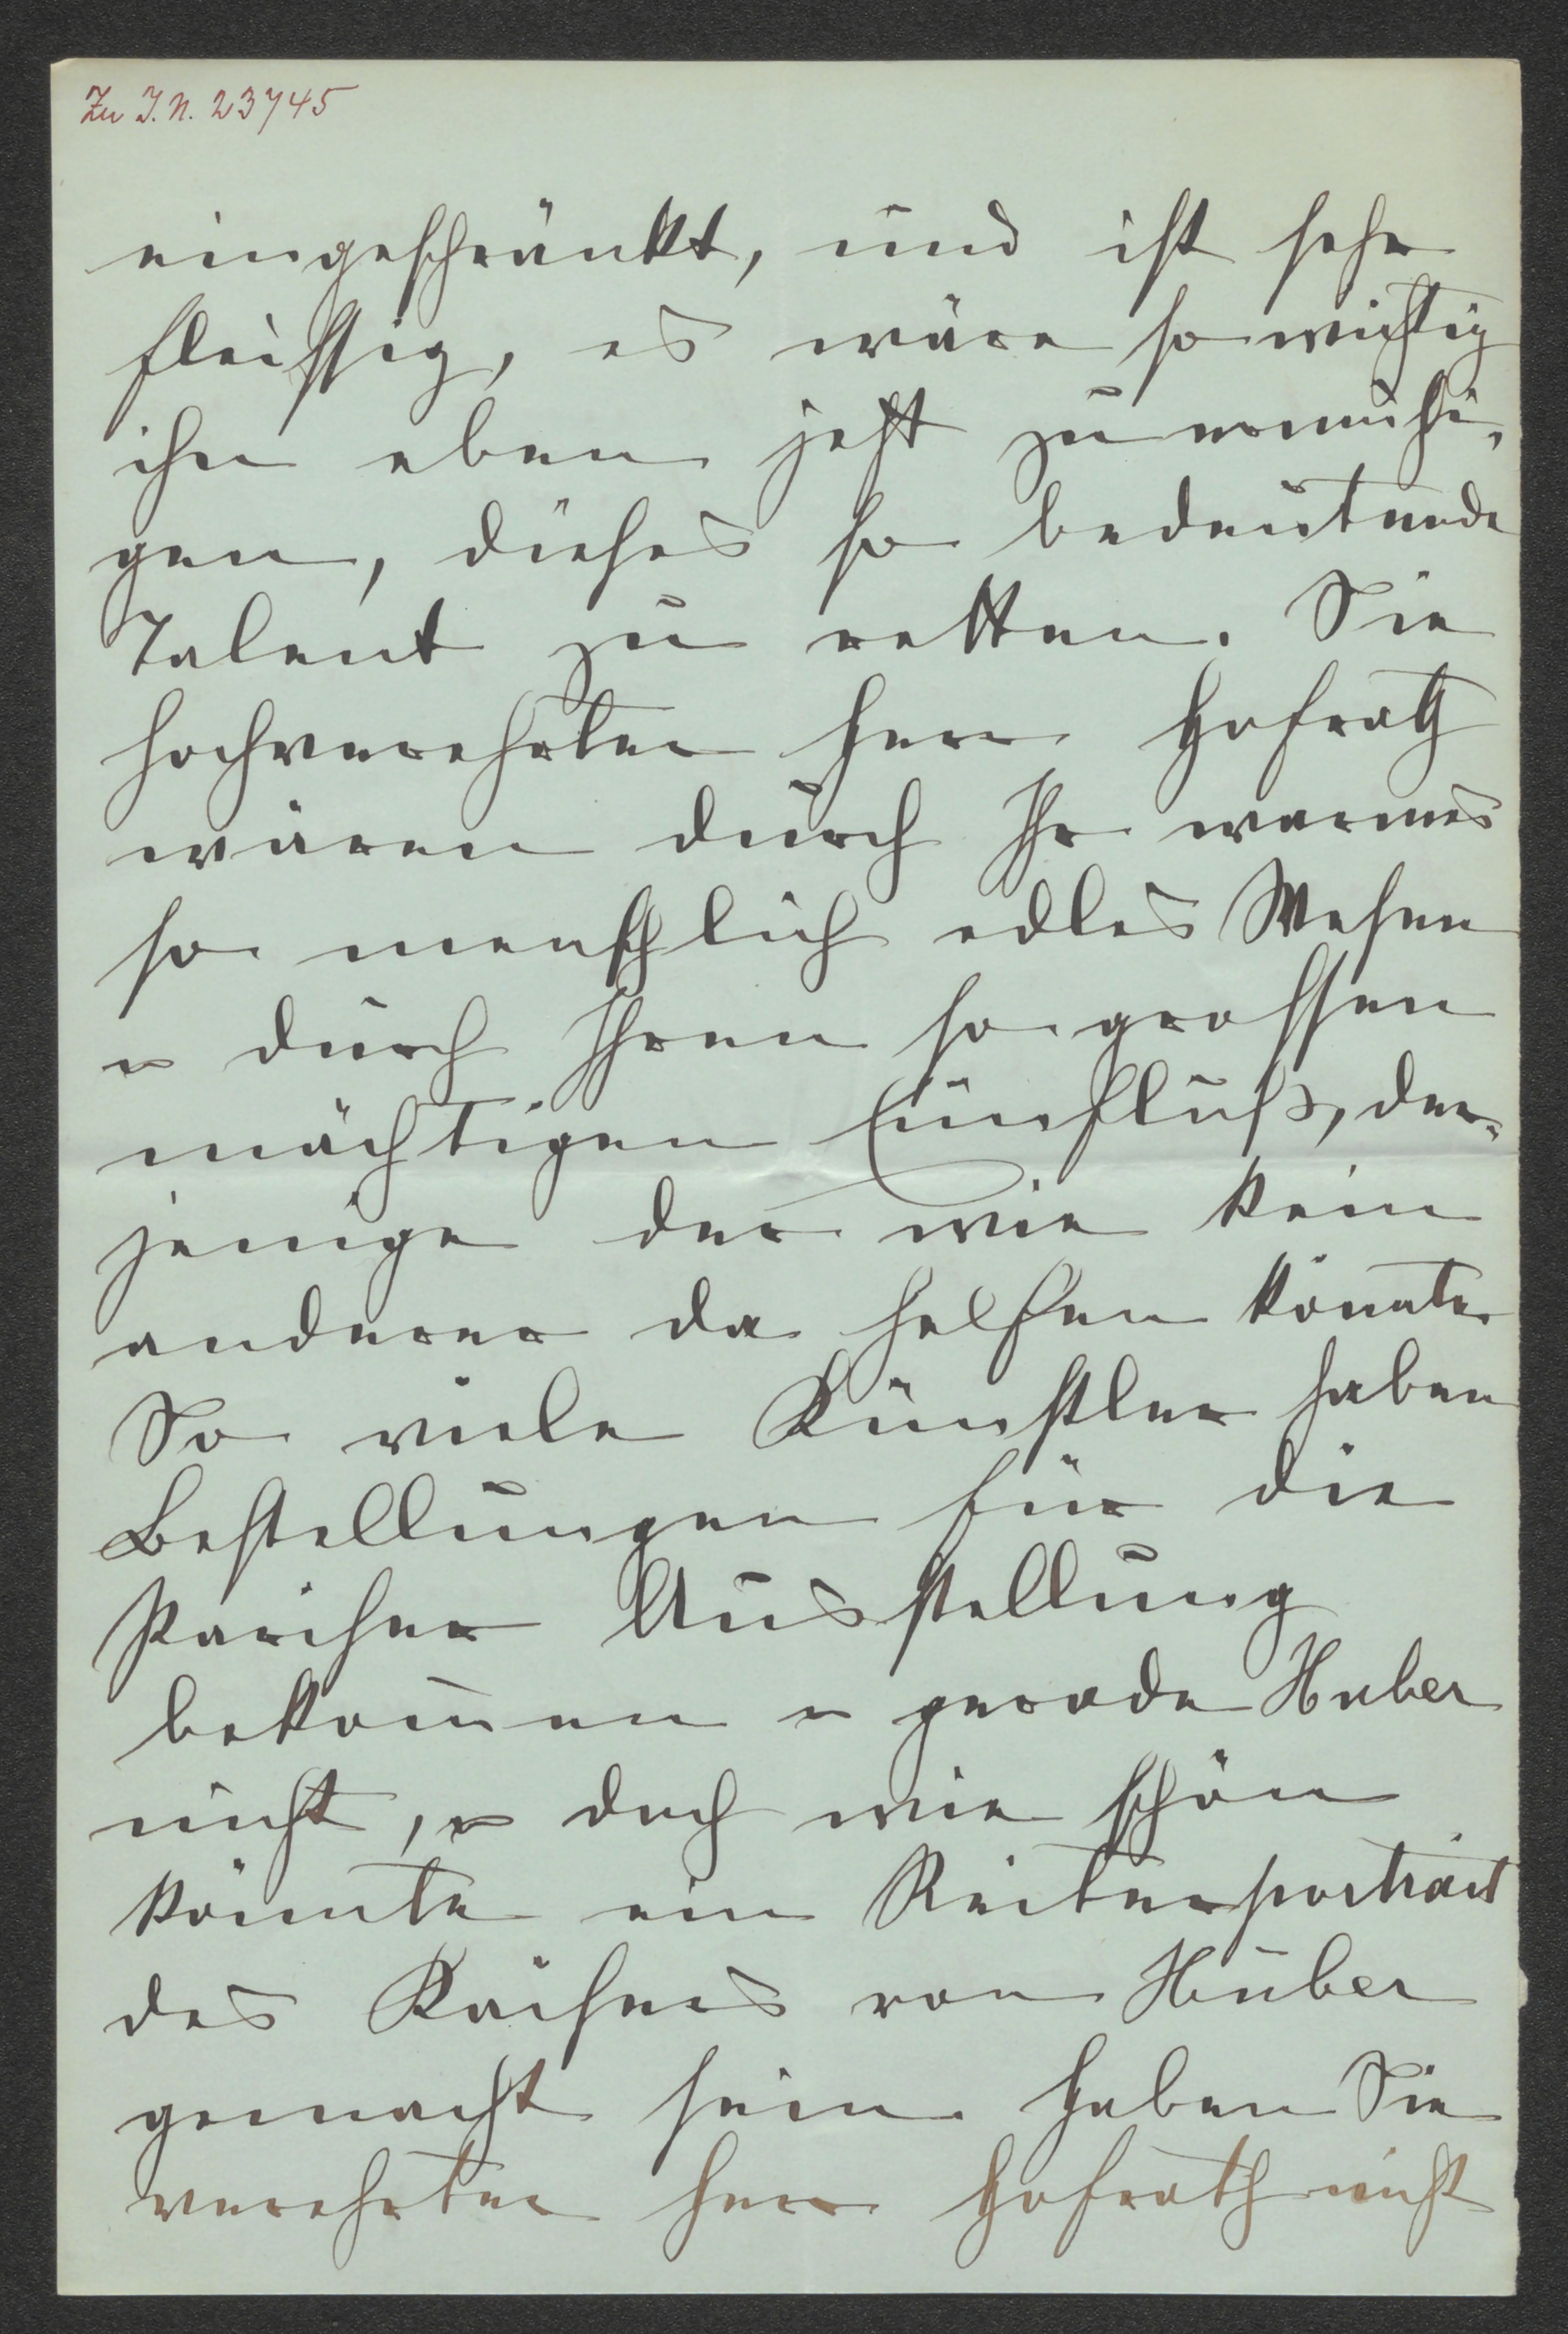 Zu I.N. 23745
eingeschränkt, und ist sehr
fleissig, es wäre so wichtig
ihn eben jetzt zu ermuthi-
gen, dieses so bedeutende
Talent zu retten. Sie
hochverehrter Herr Hofrath
wären durch Ihr warmes
so menschlich edles Wesen
u durch Ihren so grossen
mächtigen Einfluß, der-
jenige der wie kein
anderer da helfen könnte
So viele Künstler haben
Bestellungen für die
Pariser Ausstellung
bekom̄en u gerade Huber
nicht, u doch wie schön
könnte ein Reiterportrait
des Kaisers von Huber
gemacht sein. Haben Sie
verehrter Herr Hofrath nicht